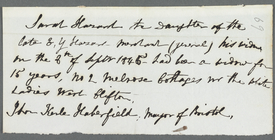 Sarah Hazard the daughter of the
late E. Y. Hazard merchant (general) his widow
on the 2nd of Septr 1845 had been a widow for
15 years, No 2 Melrose Cottages nr the White
Ladies West Clifton.
John Kerle Haberfield, Mayor of Bristol,
69